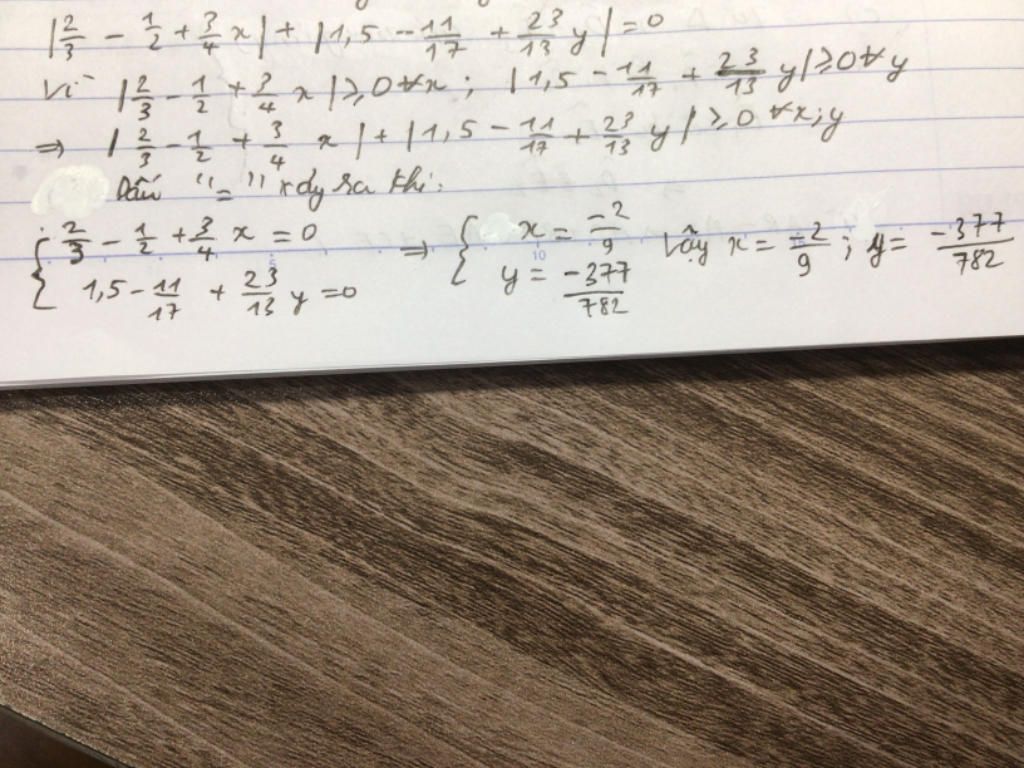 |2/3 - 1/2 + 3/4 x| + |1,5 - 11/17 + 23/13 y| = 0
Vì |2/3 - 1/2 + 3/4 x| ≥ 0 ∀x ; |1,5 - 11/17 + 23/13 y| ≥ 0 ∀y
⇒ |2/3 - 1/2 + 3/4 x| + |1,5 - 11/17 + 23/13 y| ≥ 0 ∀x;y
Dấu "=" xảy ra khi:
{ 2/3 - 1/2 + 3/4 x = 0
1,5 - 11/17 + 23/13 y = 0
⇒ { x = -2/9
y = -377/782
Vậy x = -2/9 ; y = -377/782
10